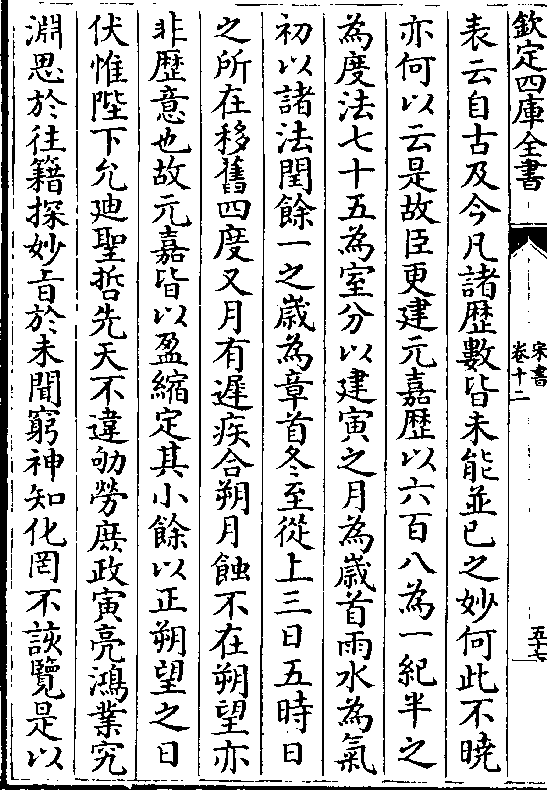 欽定四庫全書
宋書
卷十二
五十六
表云自古及今凡諸歴數皆未能並已之妙何此不曉
亦何以云是故臣更建元嘉歴以六百八為一紀半之
為度法七十五為室分以建寅之月為歳首雨水為氣
初以諸法閏餘一之歳為章首冬至從上三日五時日
之所在移舊四度又月有遲疾合朔月蝕不在朔望亦
非歴意也故元嘉皆以盈縮定其小餘以正朔望之日
伏惟陛下允廸聖哲先天不違劬勞庶政寅亮鴻業究
淵思於往籍探妙㫖於未聞窮神知化罔不該覽是以